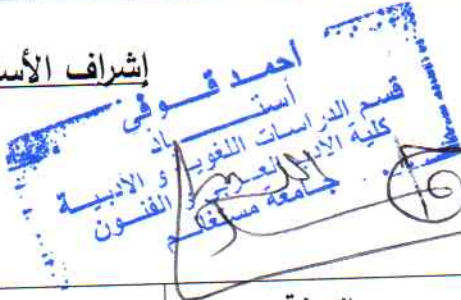 إشراف الأس
أحمد قوفي
أستاذ
قسم الدراسات اللغوية و الأدبية
كلية الأدب العربي و الفنون
جامعة مستغانم